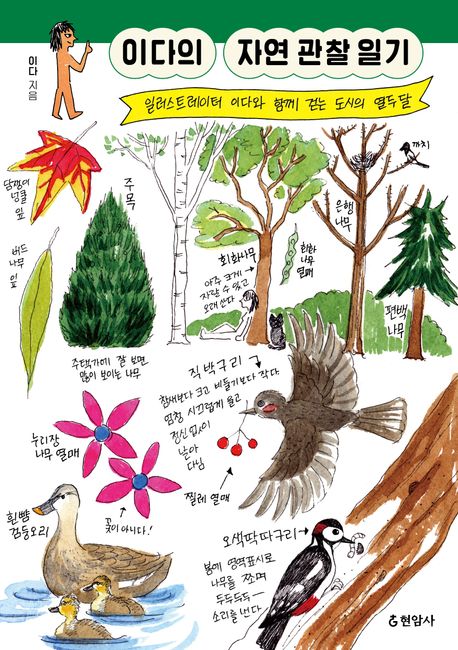 이다의 자연 관찰 일기
이다
지음
일러스트레이터 이다와 함께 걷는 도시의 열두 달
까치
담쟁이
덩굴
잎
주목
은행
나무
회화나무
아주 크게
자랄 수 있고
오래 산다
회화
나무
열매
버드
나무
잎
편백
나무
주택가에 잘 보면
많이 보이는 나무
직박구리
참새보다 크고 비둘기보다 작다
엄청 시끄럽게 울고
정신없이
날아
다님
누리장
나무 열매
찔레 열매
꽃이 아니다!
흰뺨
검둥오리
오색딱따구리
봄에 영역표시로
나무를 쪼며
두두두두
소리를 낸다
현암사